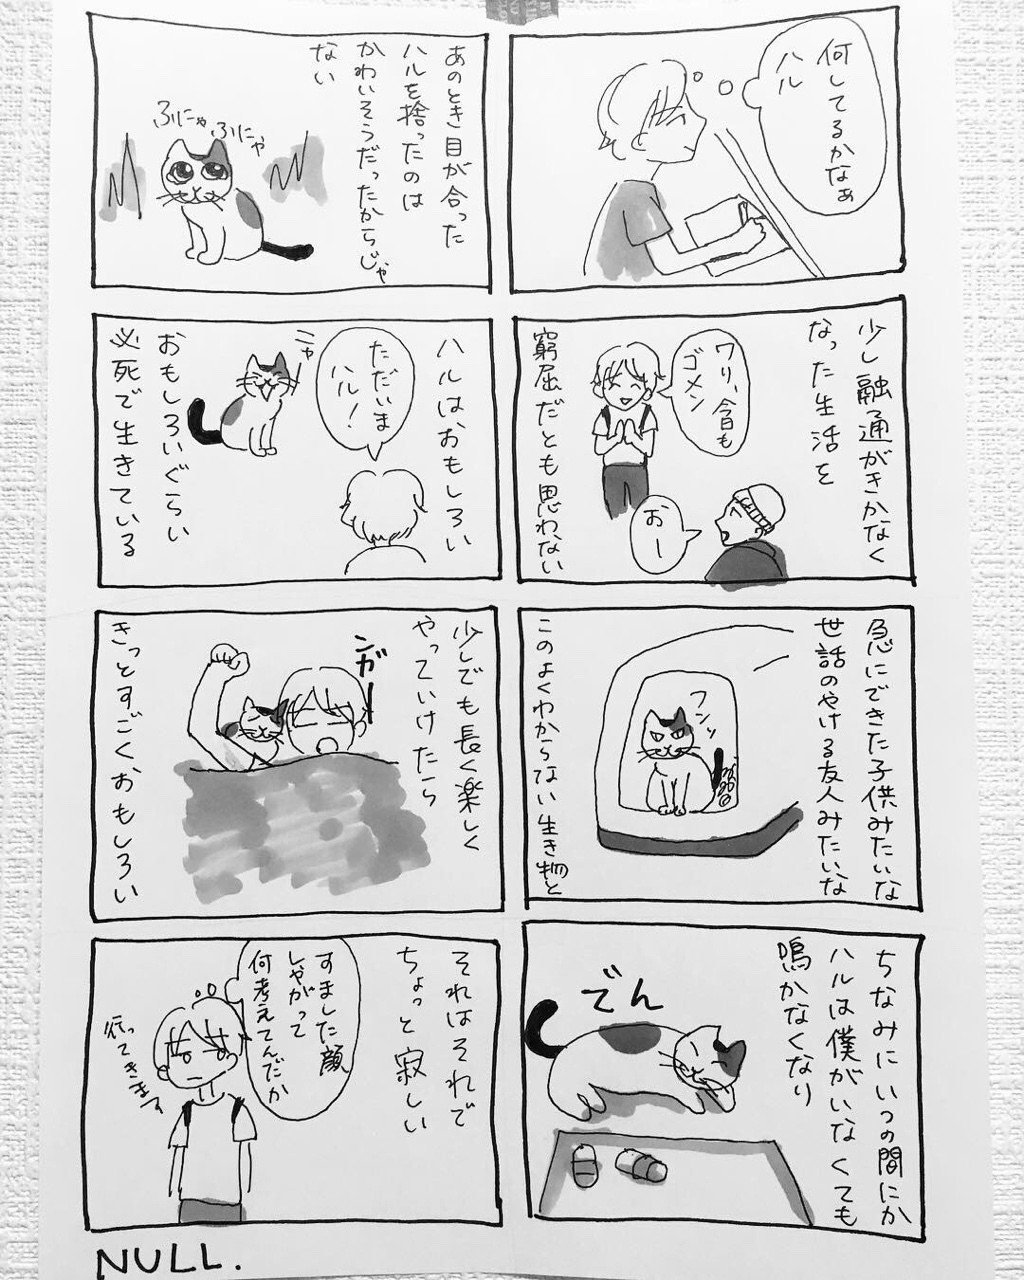 何してるかなぁ
ハル
あのとき目が合った
ハルを捨ったのは
かわいそうだったからじゃ
ない
ふにゃ
ふにゃ
少し融通がきかなく
なった生活を
ワリ、今日も
ゴメン
おー
窮屈だとも思わない
ハルはおもしろい
ただいま
ハル!
ニャ
おもしろいぐらい
必死で生きている
急にできた子供みたいな
世話のやける友人みたいな
フンッ
このよくわからない生き物と
少しでも長く楽しく
やっていけたら
ンガー
きっとすごくおもしろい
ちなみにいつの間にか
ハルは僕がいなくても
鳴かなくなり
でん
それはそれで
ちょっと寂しい
すました顔
しゃがって
何考えてんだか
行ってきまーす
NULL.